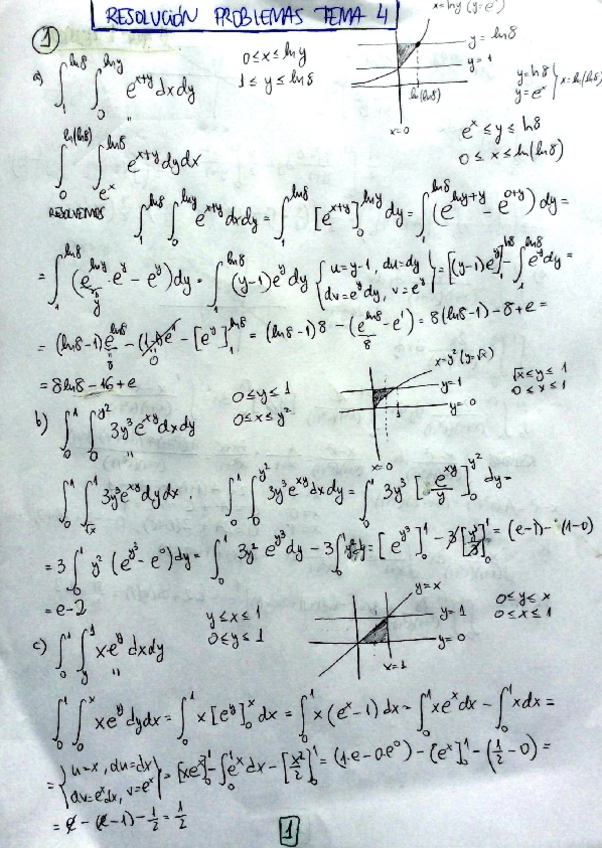 RESOLUCIÓN PROBLEMAS TEMA 4
x=lny (y=eˣ)
① 
a) ∫₁^{ln8} ∫₀^{lny} e^{x+y} dxdy
0≤x≤lny
1≤y≤ln8
y=ln8
y=1
ln(ln8)
x=0
y=ln8
y=eˣ } x=ln(ln8)
∫₀^{ln(ln8)} ∫_{eˣ}^{ln8} e^{x+y} dydx
eˣ≤y≤ln8
0≤x≤ln(ln8)
RESOLVEMOS ∫₁^{ln8} ∫₀^{lny} e^{x+y} dxdy = ∫₁^{ln8} [e^{x+y}]₀^{lny} dy = ∫₁^{ln8} (e^{lny+y} - e^{0+y}) dy =
= ∫₁^{ln8} (e^{lny}·e^y - e^y) dy = ∫₁^{ln8} (y-1)e^y dy { u=y-1, du=dy
dv=e^y dy, v=e^y } = [(y-1)e^y]₁^{ln8} - ∫₁^{ln8} e^y dy =
= (ln8-1)e^{ln8} - (1-1)e¹ - [e^y]₁^{ln8} = (ln8-1)8 - (e^{ln8} - e¹) = 8(ln8-1) - 8 + e =
= 8ln8 - 16 + e
b) ∫₀¹ ∫₀^{y²} 3y³e^{xy} dxdy
0≤y≤1
0≤x≤y²
x=y² (y=√x)
y=1
y=0
1
x=0
√x≤y≤1
0≤x≤1
∫₀¹ ∫_{√x}¹ 3y³e^{xy} dydx . ∫₀¹ ∫₀^{y²} 3y³e^{xy} dxdy = ∫₀¹ 3y³ [e^{xy}/y]₀^{y²} dy =
= 3∫₀¹ y² (e^{y³} - e⁰) dy = ∫₀¹ 3y² e^{y³} dy - 3∫₀¹ y² dy = [e^{y³}]₀¹ - 3[y³/3]₀¹ = (e-1) - (1-0)
= e-2
c) ∫₀¹ ∫_y¹ xe^y dxdy
y≤x≤1
0≤y≤1
y=x
y=1
y=0
x=1
0≤y≤x
0≤x≤1
∫₀¹ ∫₀ˣ xe^y dydx = ∫₀¹ x[e^y]₀ˣ dx = ∫₀¹ x(eˣ-1) dx = ∫₀¹ xeˣ dx - ∫₀¹ x dx =
= { u=x, du=dx
dv=eˣdx, v=eˣ } = [xeˣ]₀¹ - ∫₀¹ eˣ dx - [x²/2]₀¹ = (1·e - 0·e⁰) - [eˣ]₀¹ - (1/2 - 0) =
= e - (e-1) - 1/2 = 1/2
1